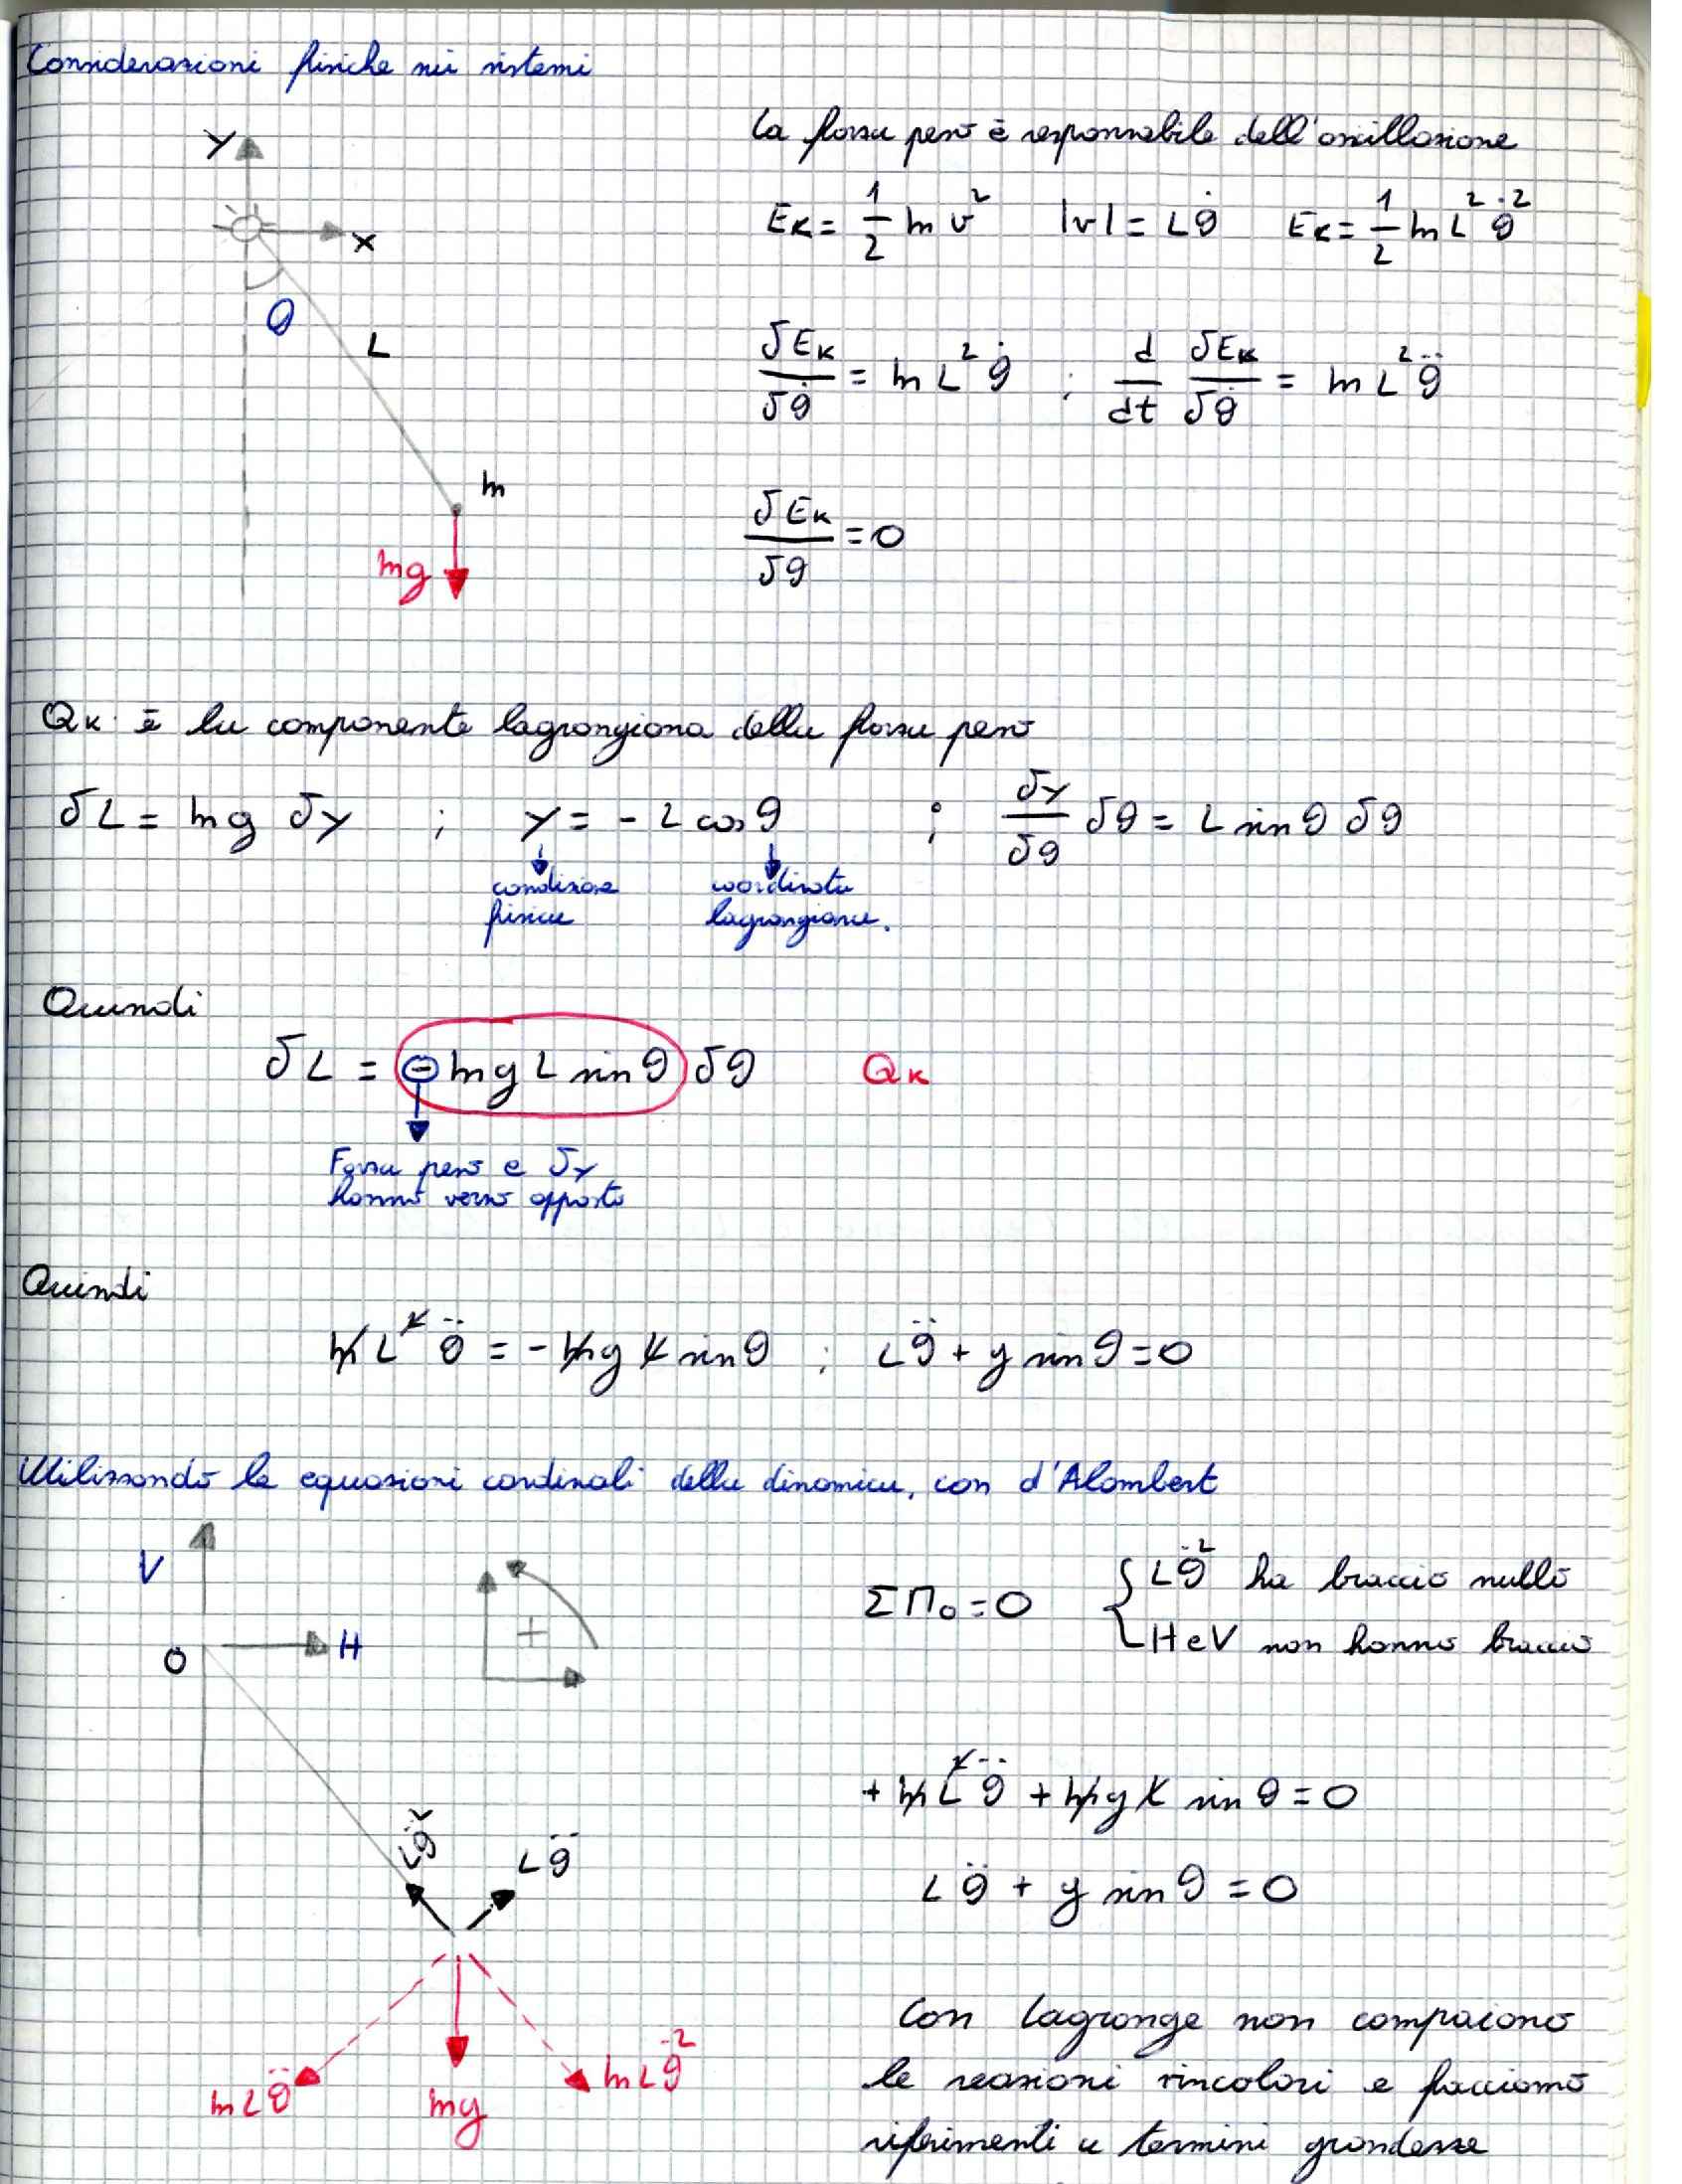 Considerazioni fisiche sui sistemi
Y
X
θ
L
m
mg
La forza peso è responsabile dell'oscillazione
Eκ = 1/2 m v² |v| = Lϑ̇ Eκ = 1/2 m L² ϑ̇²
δEκ/δϑ̇ = m L² ϑ̇ ; d/dt δEκ/δϑ̇ = m L² ϑ̈
δEκ/δϑ = 0
Qκ è la componente lagrangiana della forza peso
δL = mg δy ; y = - L cosϑ ; δy/δϑ δϑ = L sinϑ δϑ
condizione fisica
coordinata lagrangiana.
Quindi
δL = - mg L sinϑ δϑ Qκ
Forza peso e δy
hanno verso opposto
Quindi
m L² ϑ̈ = - mg L sinϑ ; Lϑ̈ + g sinϑ = 0
Utilizzando le equazioni cardinali della dinamica, con d'Alambert
V
H
O
+
ΣΠo = 0 { Lϑ̇² ha braccio nullo
H e V non hanno braccio
+ m L² ϑ̈ + mg L sinϑ = 0
Lϑ̈ + g sinϑ = 0
Lϑ̇²
Lϑ̈
mLϑ̈
mg
mLϑ̇²
Con Lagrange non compaiono
le reazioni vincolari e facciamo
riferimenti a termini grandezze